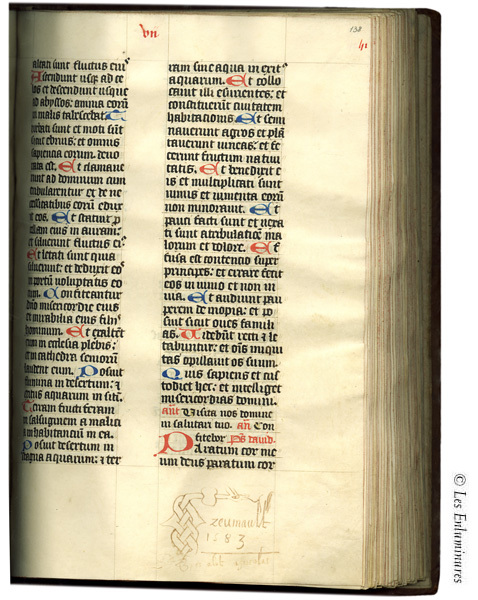 vii
138
altati sunt fluctus eius
Ascendunt usque ad ce
los et descendunt usque
ad abyssos: anima eorū
in malis tabescebat. T
urbati sunt et moti sūt
sicut ebrius: et omnis
sapientia eorum. devo
rata est. Et clamave
runt ad dominum cum
tribularentur et de ne
cessitatibus eorū eduxi
t eos. Et statuit p
ellam eius in auram:
et siluerunt fluctus ei
Et letati sunt quia
siluerunt: et deduxit eos
in portū voluptatis eo
rum. Confiteantur
dn̄o misericordie eius
et mirabilia eius filiis
hominum. Et exaltēt
eum in ecclesia plebis:
et in cathedra seniorū
laudent eum. Posuit
flumina in desertum: et
exitus aquarum in sitī.
Terram fructiferam
in salsuginem a maliti
a inhabitanciū in ea.
Posuit desertum in
stagna aquarum: et ter
ram sine aqua in exit
aquarum. Et collo
cavit illic esurientes: et
constituerūt civitatem
habitacionis. Et semi
naverunt agros et plā
taverunt vineas: et fe
cerunt fructum nativi
tatis. Et benedixit e
is et multiplicati sunt
nimis et iumenta eorū
non minoravit. Et
pauci facti sunt et vexa
ti sunt a tribulatiōe ma
lorum et dolore. Ef
fusa est contencio super
principes: et errare fecit
eos in invio et non in
via. Et adiuvit pau
perem de inopia: et po
suit sicut oves famili
as. Videbūt recti et le
tabuntur: et om̄is iniqui
tas opilabit os suum.
Quis sapiens et cus
todiet hec: et intelliget
misericordias domini.
ant Visita nos domine
in salutari tuo. an Con
fitebor Ps david.
Paratum cor me
um deus paratum cor
zeumault
1583
© Les Enluminures